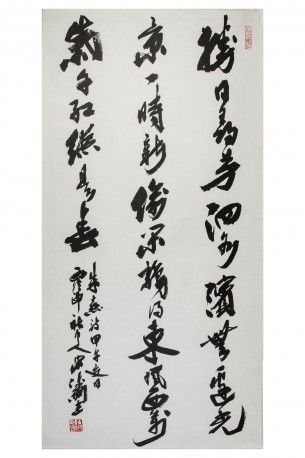 勝日尋芳泗水濱無邊光
景一時新偷閒識得東風面萬
紫千紅總是春
朱熹詩甲午夏日